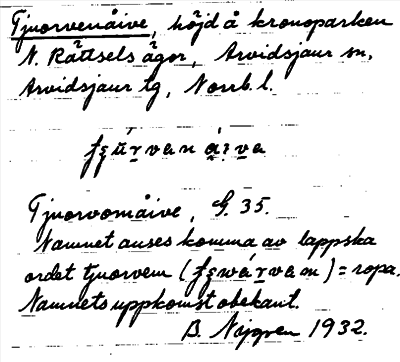 Tjuorvenåive, höjd å kronoparken
N. Rättsels ägor, Arvidsjaur sn,
Arvidsjaur tg, Norrb. l.
Tjuorvomåive, G. 35.
Namnet anses komma av lappska
ordet tjuorvem = ropa.
Namnets uppkomst obekant.
B Nygren 1932.